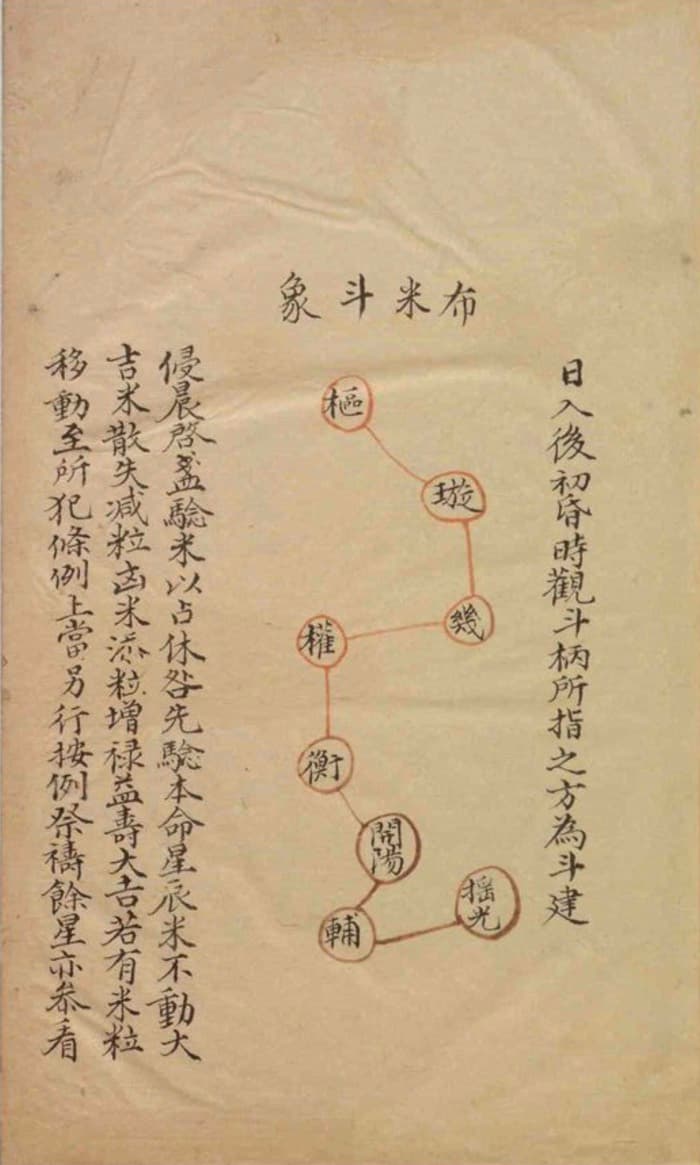 日入後初昏時觀斗柄所指之方為斗建
布米斗象
樞
璇
幾
權
衡
開陽
輔
揺光
侵晨啓盏驗米以占休咎先驗本命星辰米不動大
吉米散失减粒凶米添粒增禄益壽大吉若有米粒
移動至所犯條例上當另行按例祭禱餘星亦叅看